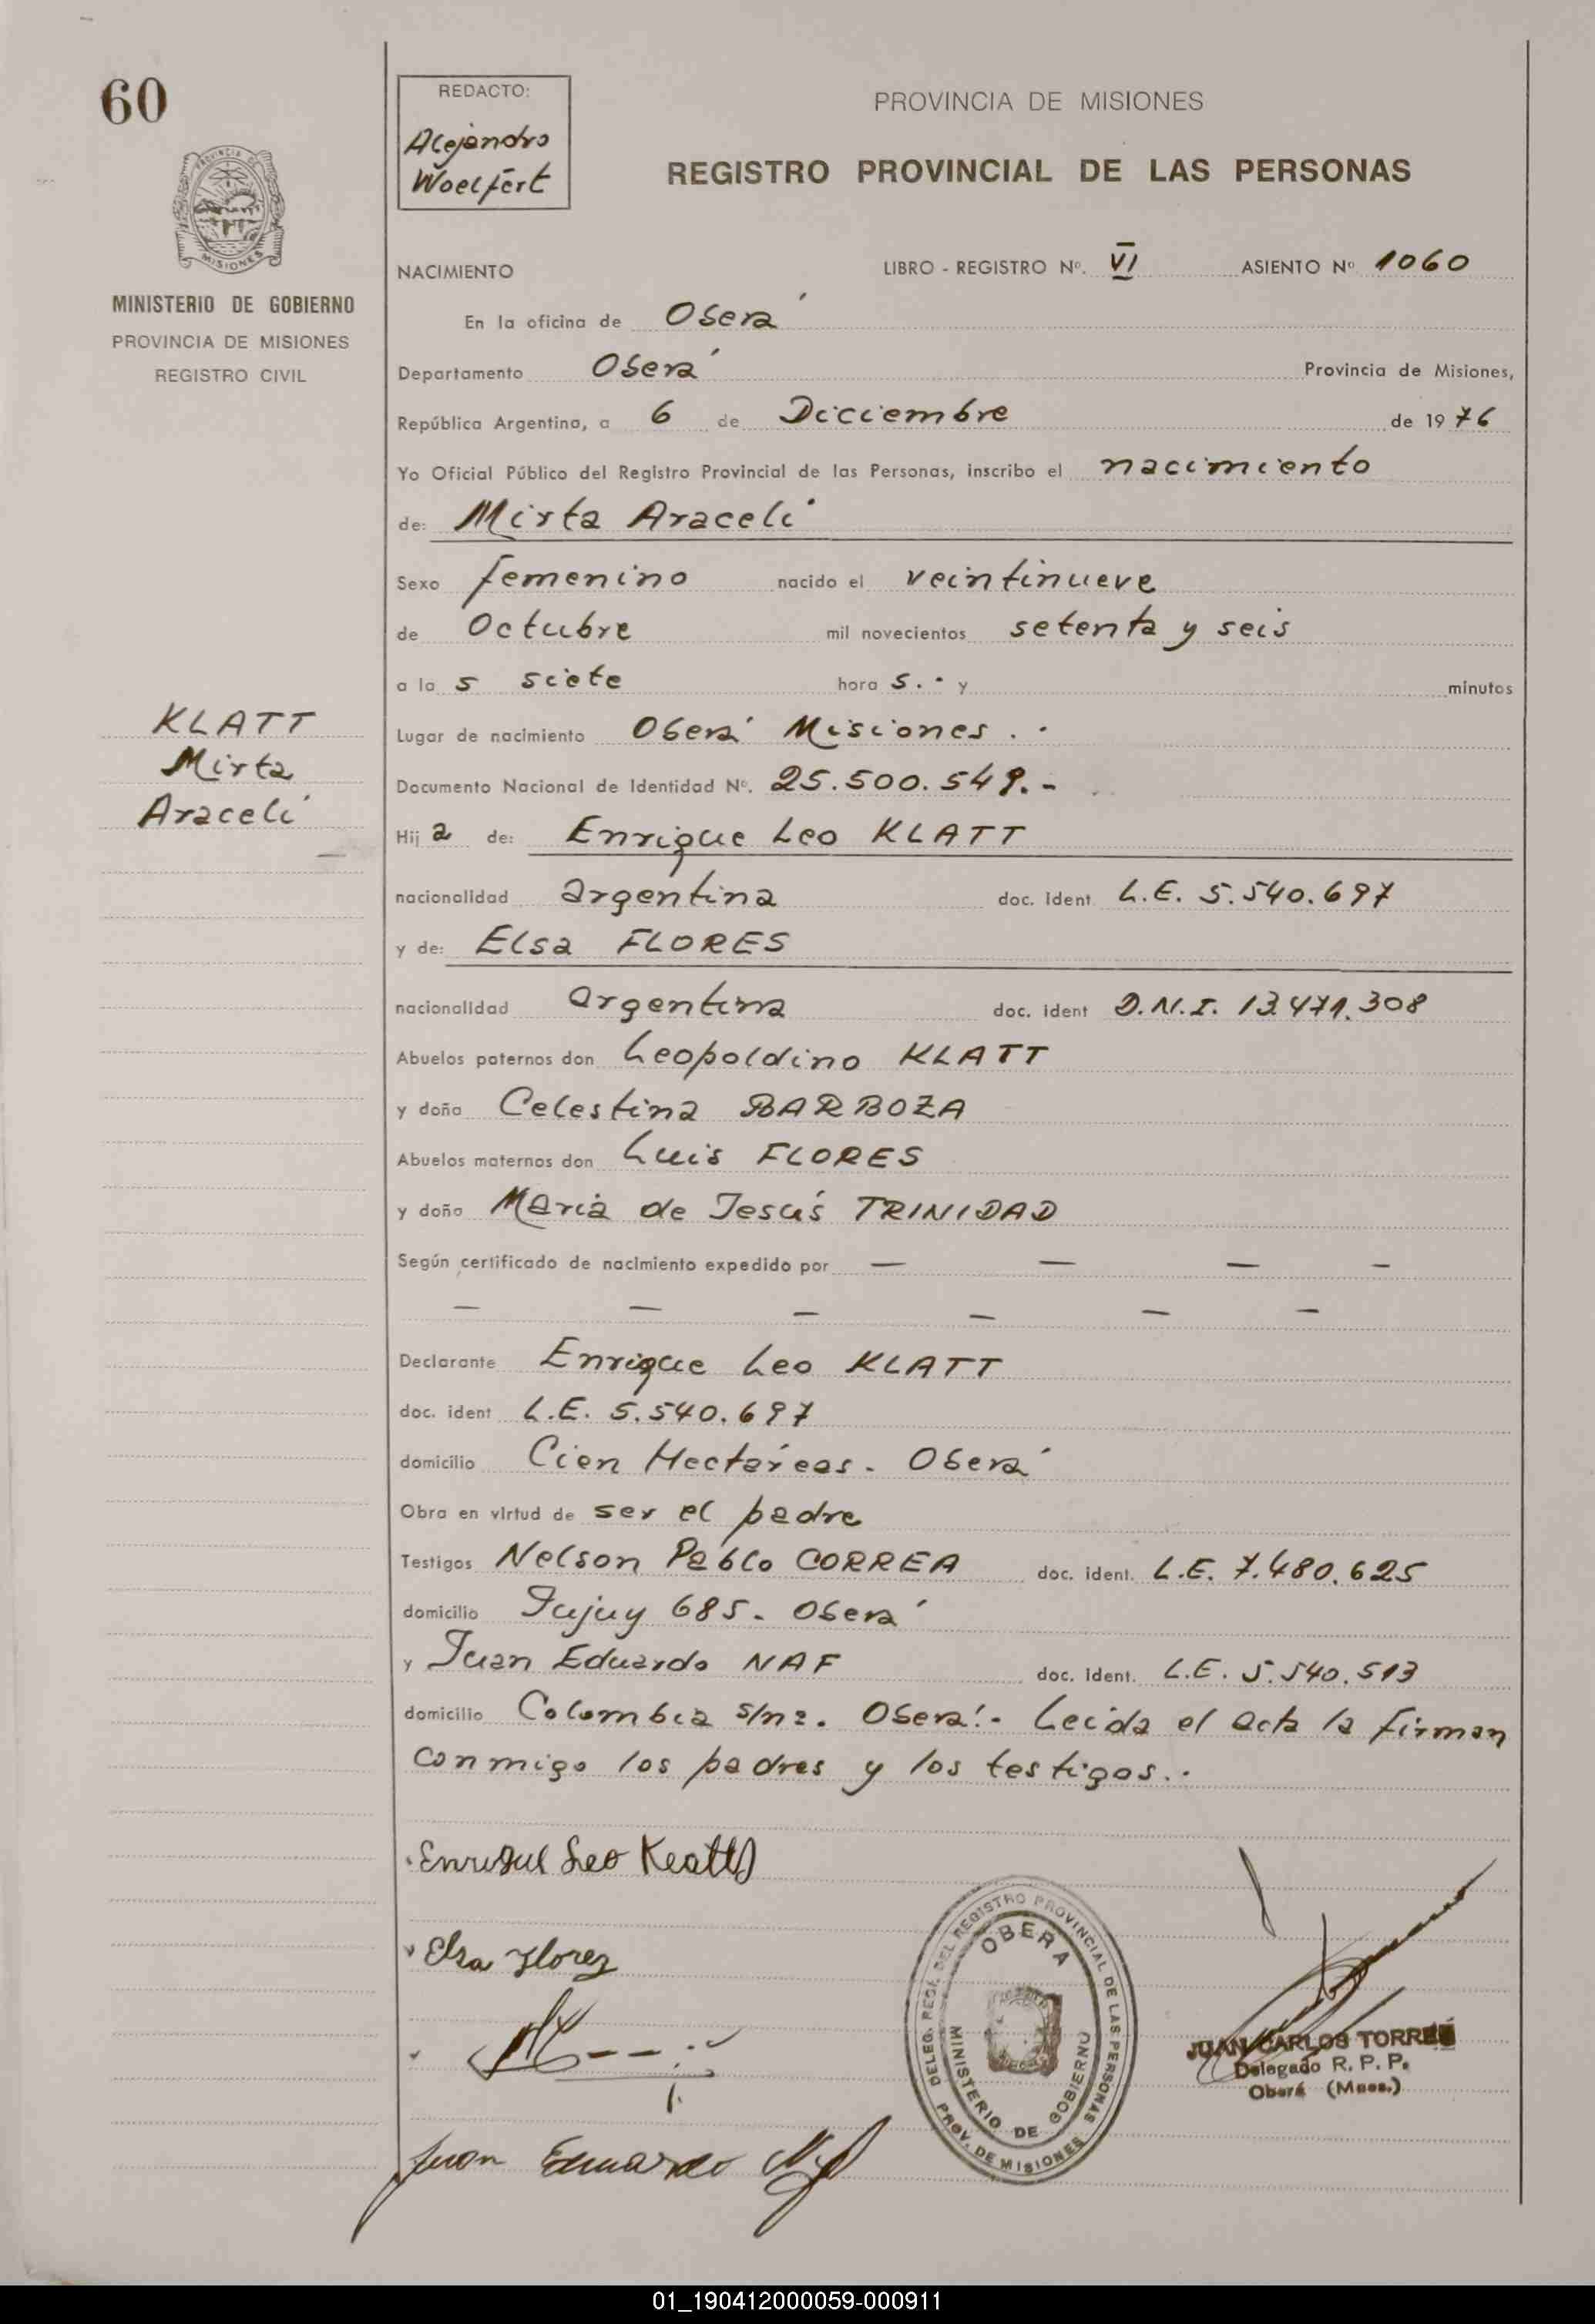 60
REDACTO:
Alejandro
Woelfert
PROVINCIA DE MISIONES
REGISTRO PROVINCIAL DE LAS PERSONAS
PROVINCIA DE
MISIONES
MINISTERIO DE GOBIERNO
PROVINCIA DE MISIONES
REGISTRO CIVIL
NACIMIENTO LIBRO - REGISTRO Nº. VI ASIENTO Nº 1060
En la oficina de Oberá
Departamento Oberá Provincia de Misiones,
República Argentina, a 6 de Diciembre de 1976
Yo Oficial Público del Registro Provincial de las Personas, inscribo el nacimiento
de: Mirta Araceli
Sexo femenino nacido el veintinueve
de Octubre mil novecientos setenta y seis
a la s siete hora s.- y minutos
KLATT
Mirta
Araceli
Lugar de nacimiento Oberá Misiones.-
Documento Nacional de Identidad Nº. 25.500.549.-
Hij a de: Enrique Leo KLATT
nacionalidad argentina doc. ident. L.E. 5.540.697
y de: Elsa FLORES
nacionalidad argentina doc. ident D.N.I. 13.471.308
Abuelos paternos don Leopoldino KLATT
y doña Celestina BARBOZA
Abuelos maternos don Luis FLORES
y doña Maria de Jesús TRINIDAD
Según certificado de nacimiento expedido por — — — -
— — — — — —
Declarante Enrique Leo KLATT
doc. ident L.E. 5.540.697
domicilio Cien Hectáreas - Oberá
Obra en virtud de ser el padre
Testigos Nelson Pablo CORREA doc. ident. L.E. 7.480.625
domicilio Jujuy 685 - Oberá
y Juan Eduardo NAF doc. ident. L.E. 5.540.513
domicilio Colombia s/nº. Oberá.- Leida el acta la firman
conmigo los padres y los testigos.-
Enrique Leo Klatt
Elsa Florez
Juan Eduardo Naf
DELEG. REGI. DEL REGISTRO PROVINCIAL DE LAS PERSONAS
OBERA
MINISTERIO DE GOBIERNO
PROV. DE MISIONES
JUAN CARLOS TORRES
Delegado R. P. P.
Oberá (Mnes.)
01_190412000059-000911